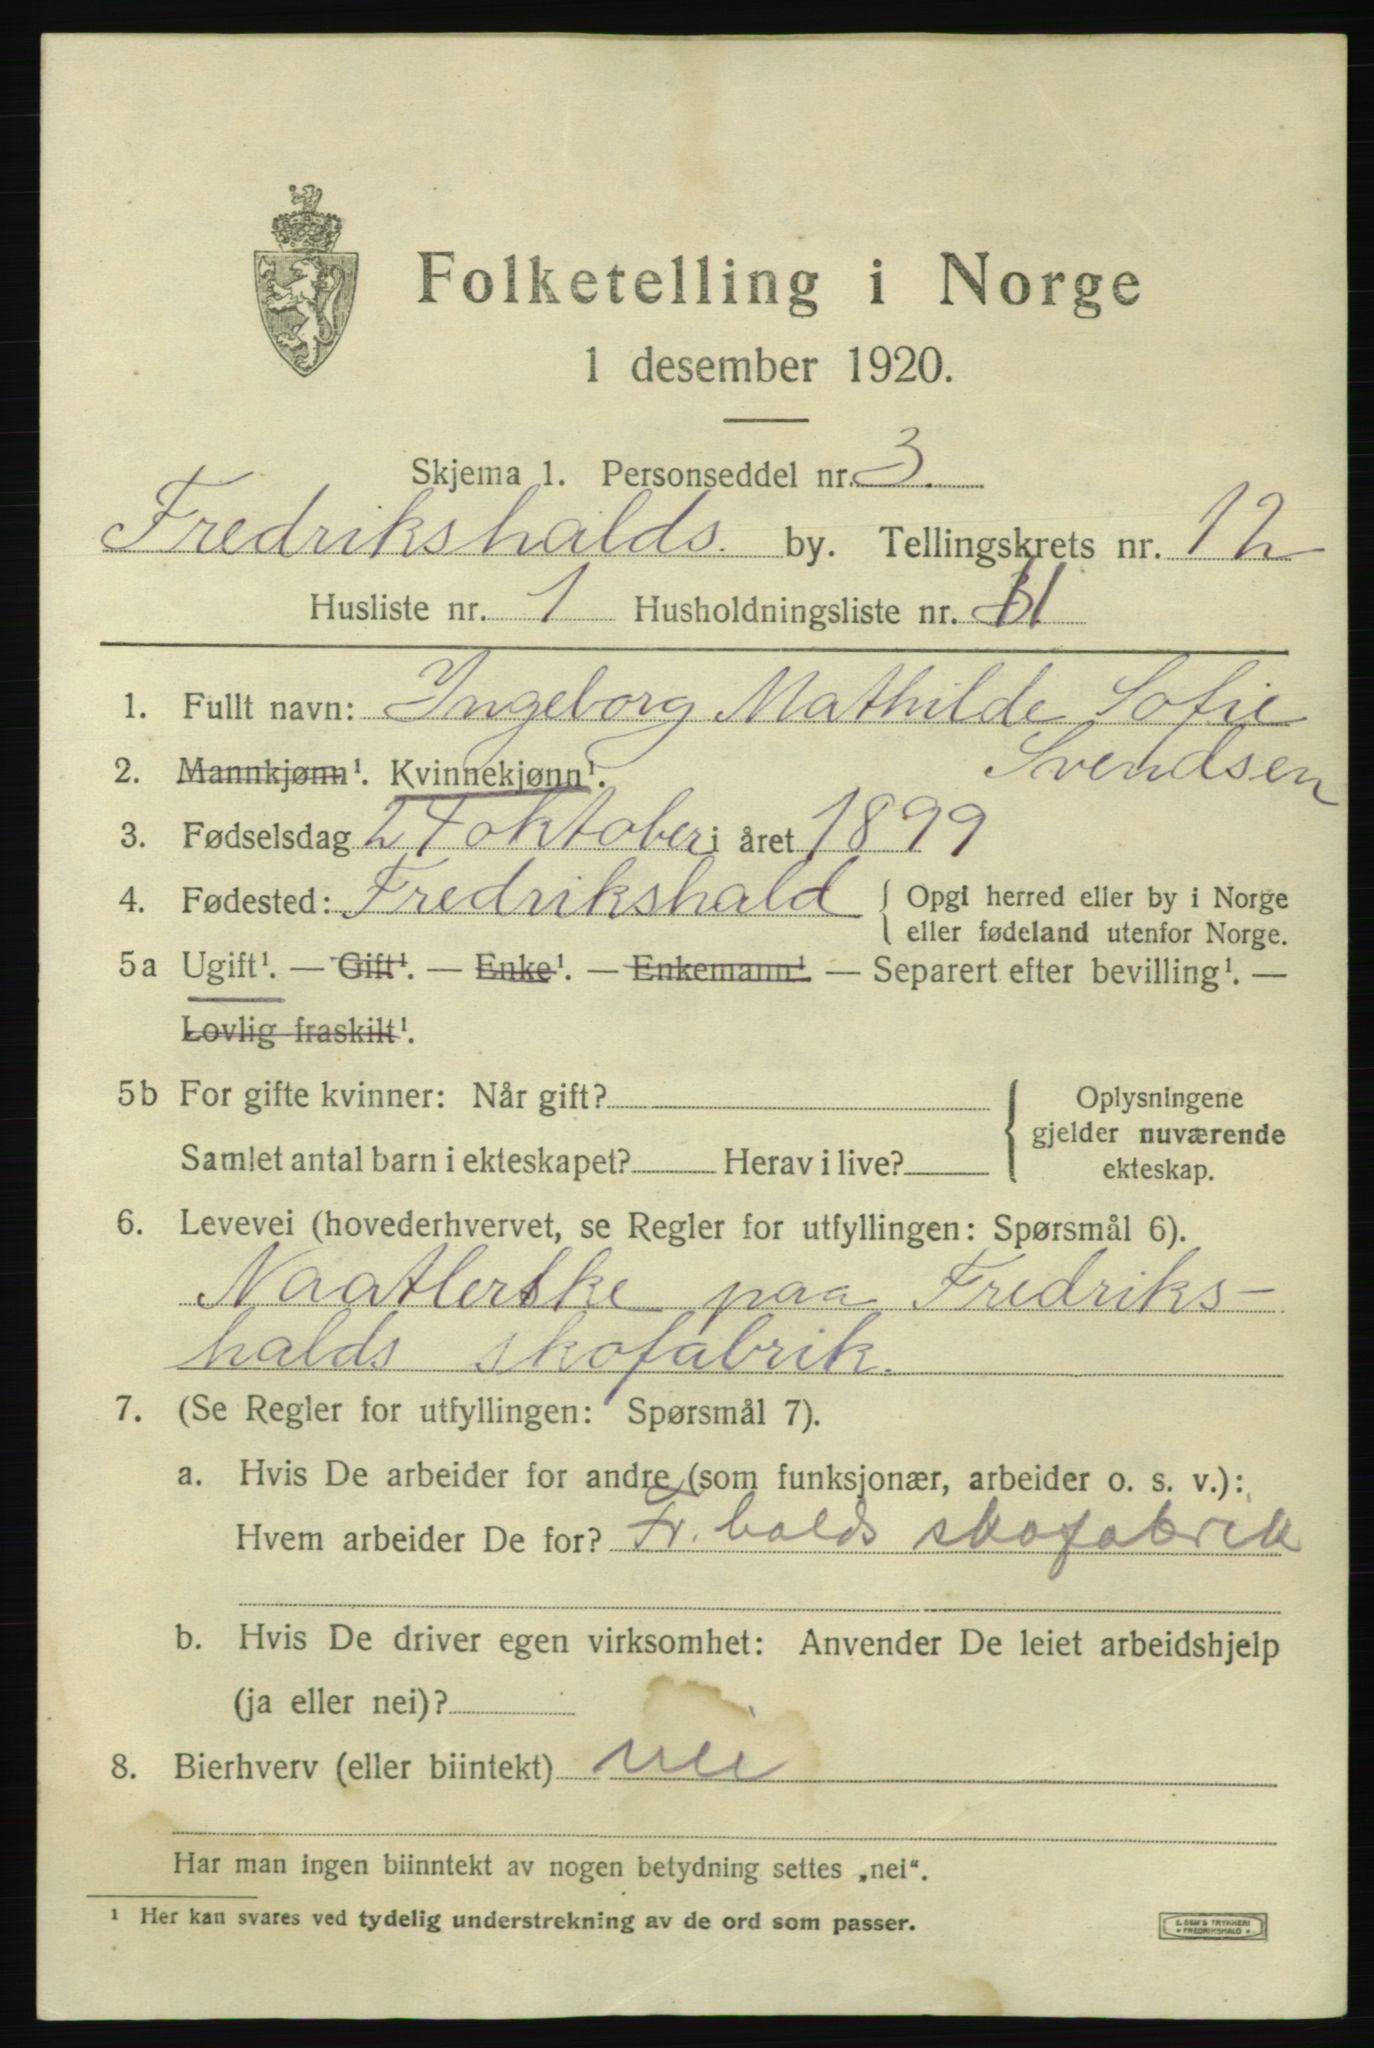 Folketelling i Norge
1 desember 1920.
Skjema 1. Personseddel nr. 3.
Fredrikshalds by. Tellingskrets nr. 12
Husliste nr. 1 Husholdningsliste nr.
1. Fullt navn: Ingeborg Mathilde Sofie
Svendsen
2. Mannkjønn¹. Kvinnekjønn¹.
3. Fødselsdag oktober i året 1899
4. Fødested: Fredrikshald { Opgi herred eller by i Norge
eller fødeland utenfor Norge.
5a Ugift¹. — Gift¹. — Enke¹. — Enkemann¹ — Separert efter bevilling¹. —
Lovlig fraskilt¹.
5b For gifte kvinner: Når gift? { Oplysningene
gjelder nuværende
Samlet antal barn i ekteskapet? Herav i live? ekteskap.
6. Levevei (hovederhvervet, se Regler for utfyllingen: Spørsmål 6).
Naatlerske paa Fredriks-
halds skofabrik.
7. (Se Regler for utfyllingen: Spørsmål 7).
a. Hvis De arbeider for andre (som funksjonær, arbeider o. s. v.):
Hvem arbeider De for? Fr. halds skofabrik
b. Hvis De driver egen virksomhet: Anvender De leiet arbeidshjelp
(ja eller nei)?
8. Bierhverv (eller biintekt) nei
Har man ingen biinntekt av nogen betydning settes „nei“.
¹ Her kan svares ved tydelig understrekning av de ord som passer.